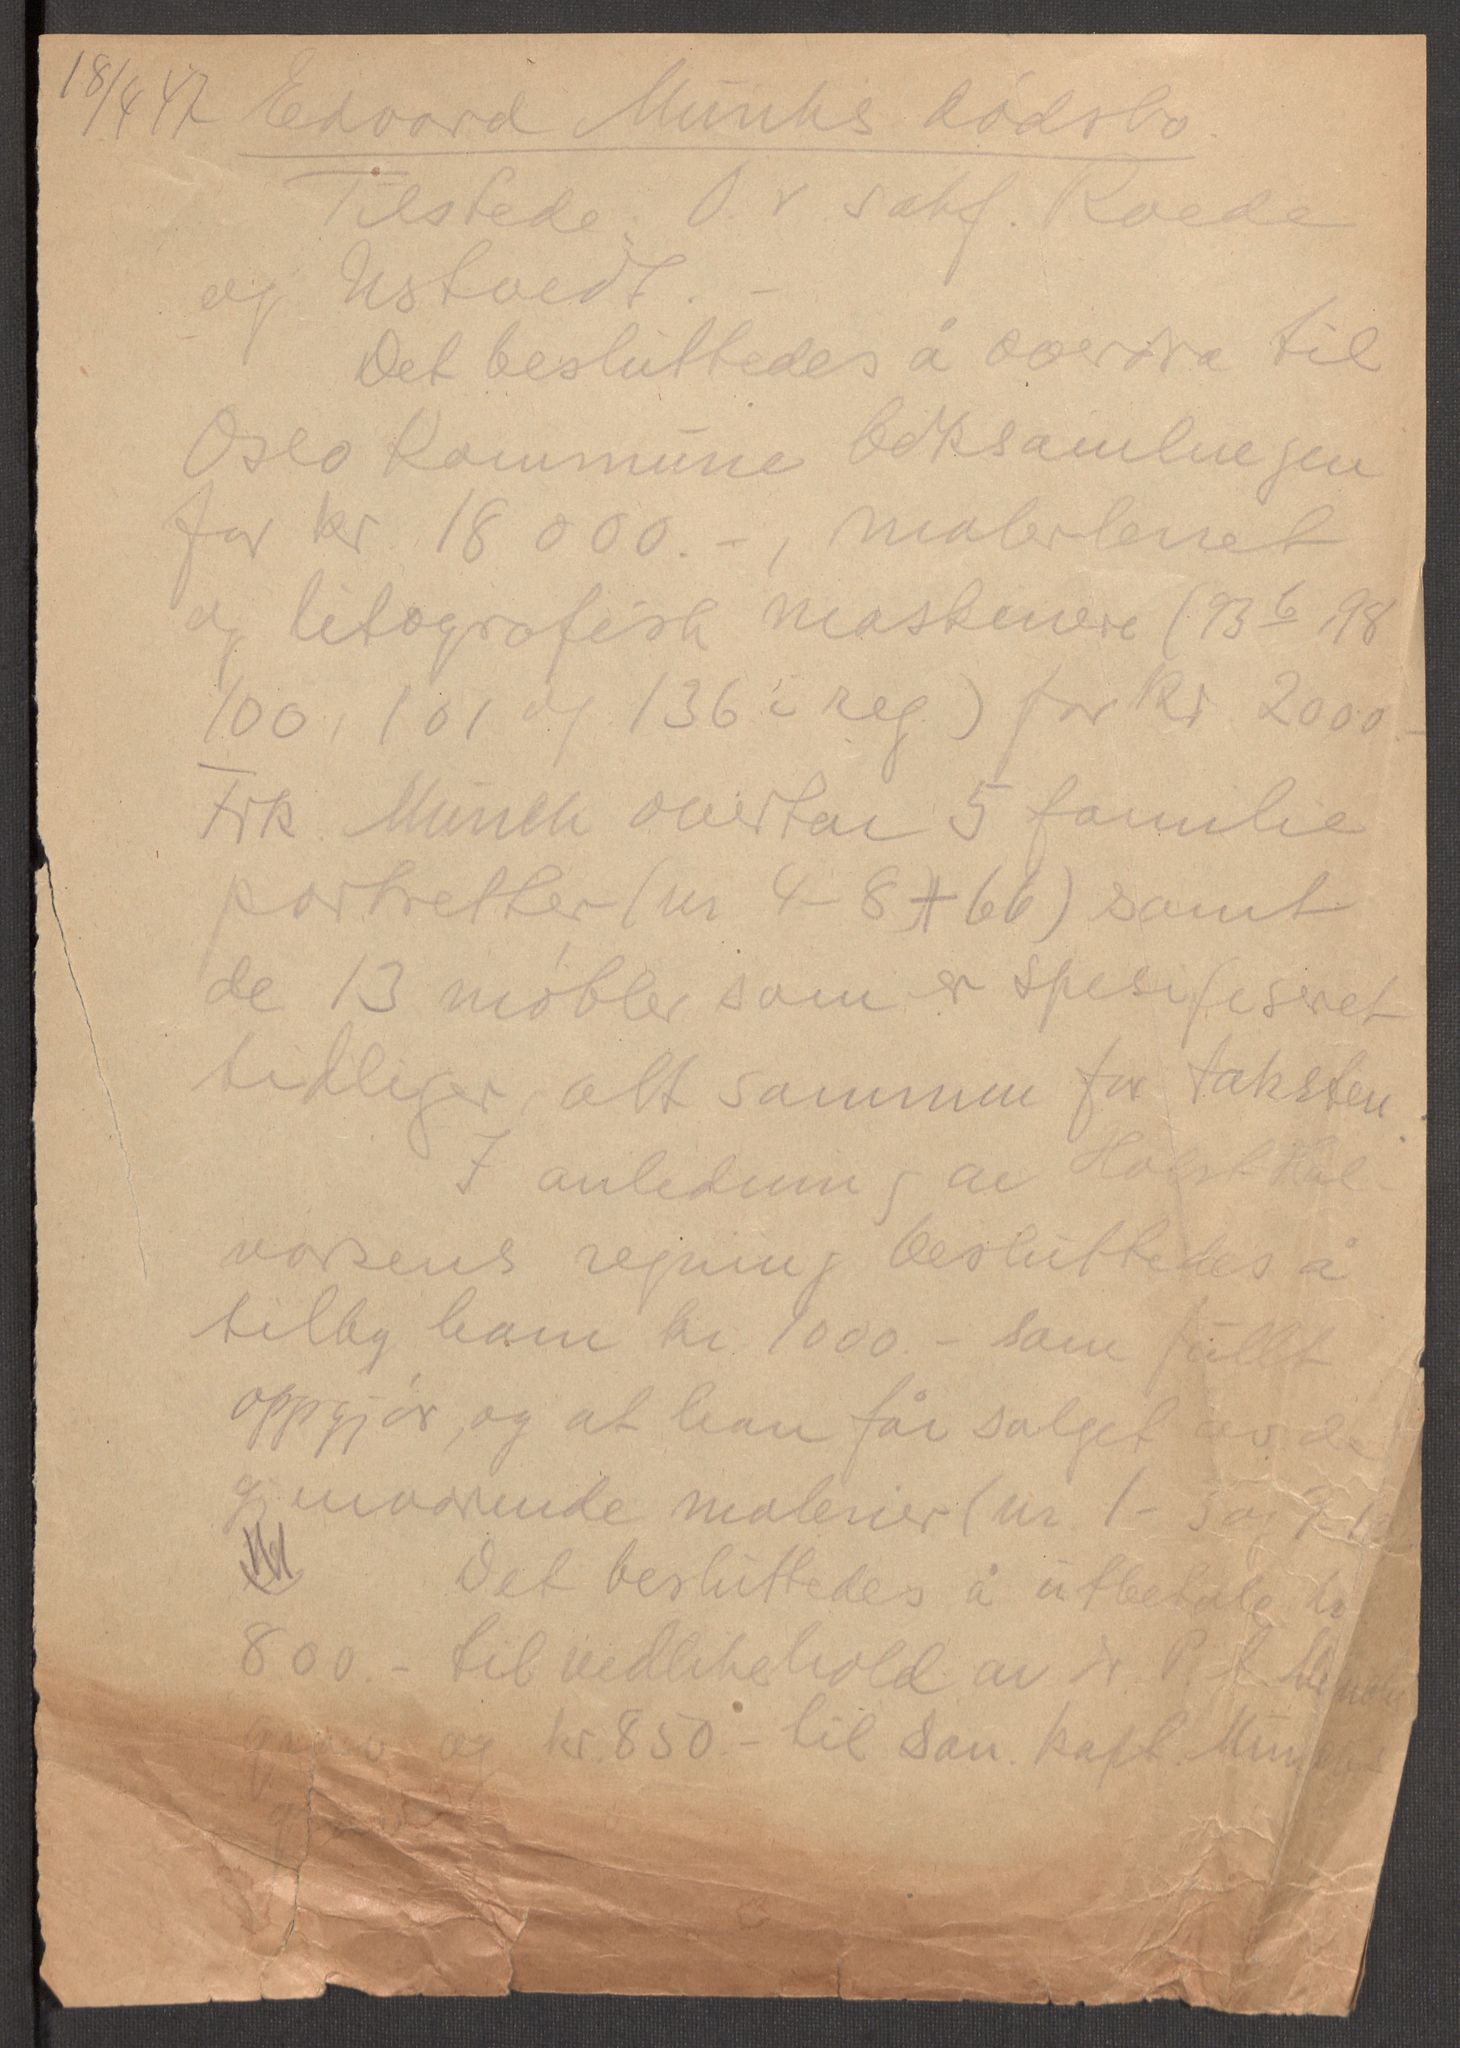 18/4 47 Edvard Munchs dödsbo.
Tilstede: O.r. sakf. Roede
og Ustvedt. -
Det besluttedes å overdra til
Oslo Kommune boksamlingen
for kr. 18 000.-, malerlerret
og litografisk maskineri (93 b, 98
100, 101 og 136 i reg.) for kr 2000.-
Frk. Munch overtar 5 familie
portretter (nr 4-8 + 66) samt
de 13 møbler som er spesifiseret
tidliger, alt sammen for taksten.
I anledning av Holst Hal-
vorsens regning besluttedes å
tilby ham kr. 1000.- som fullt
oppgjør, og at han får salget av de
gjenværende malerier (nr 1-3 og 9-
Det besluttedes å utbetale kr
800.- til vedlikehold av dr. P. A. Munchs
grav og kr. 850.- til san. kapt. Munchs
grav